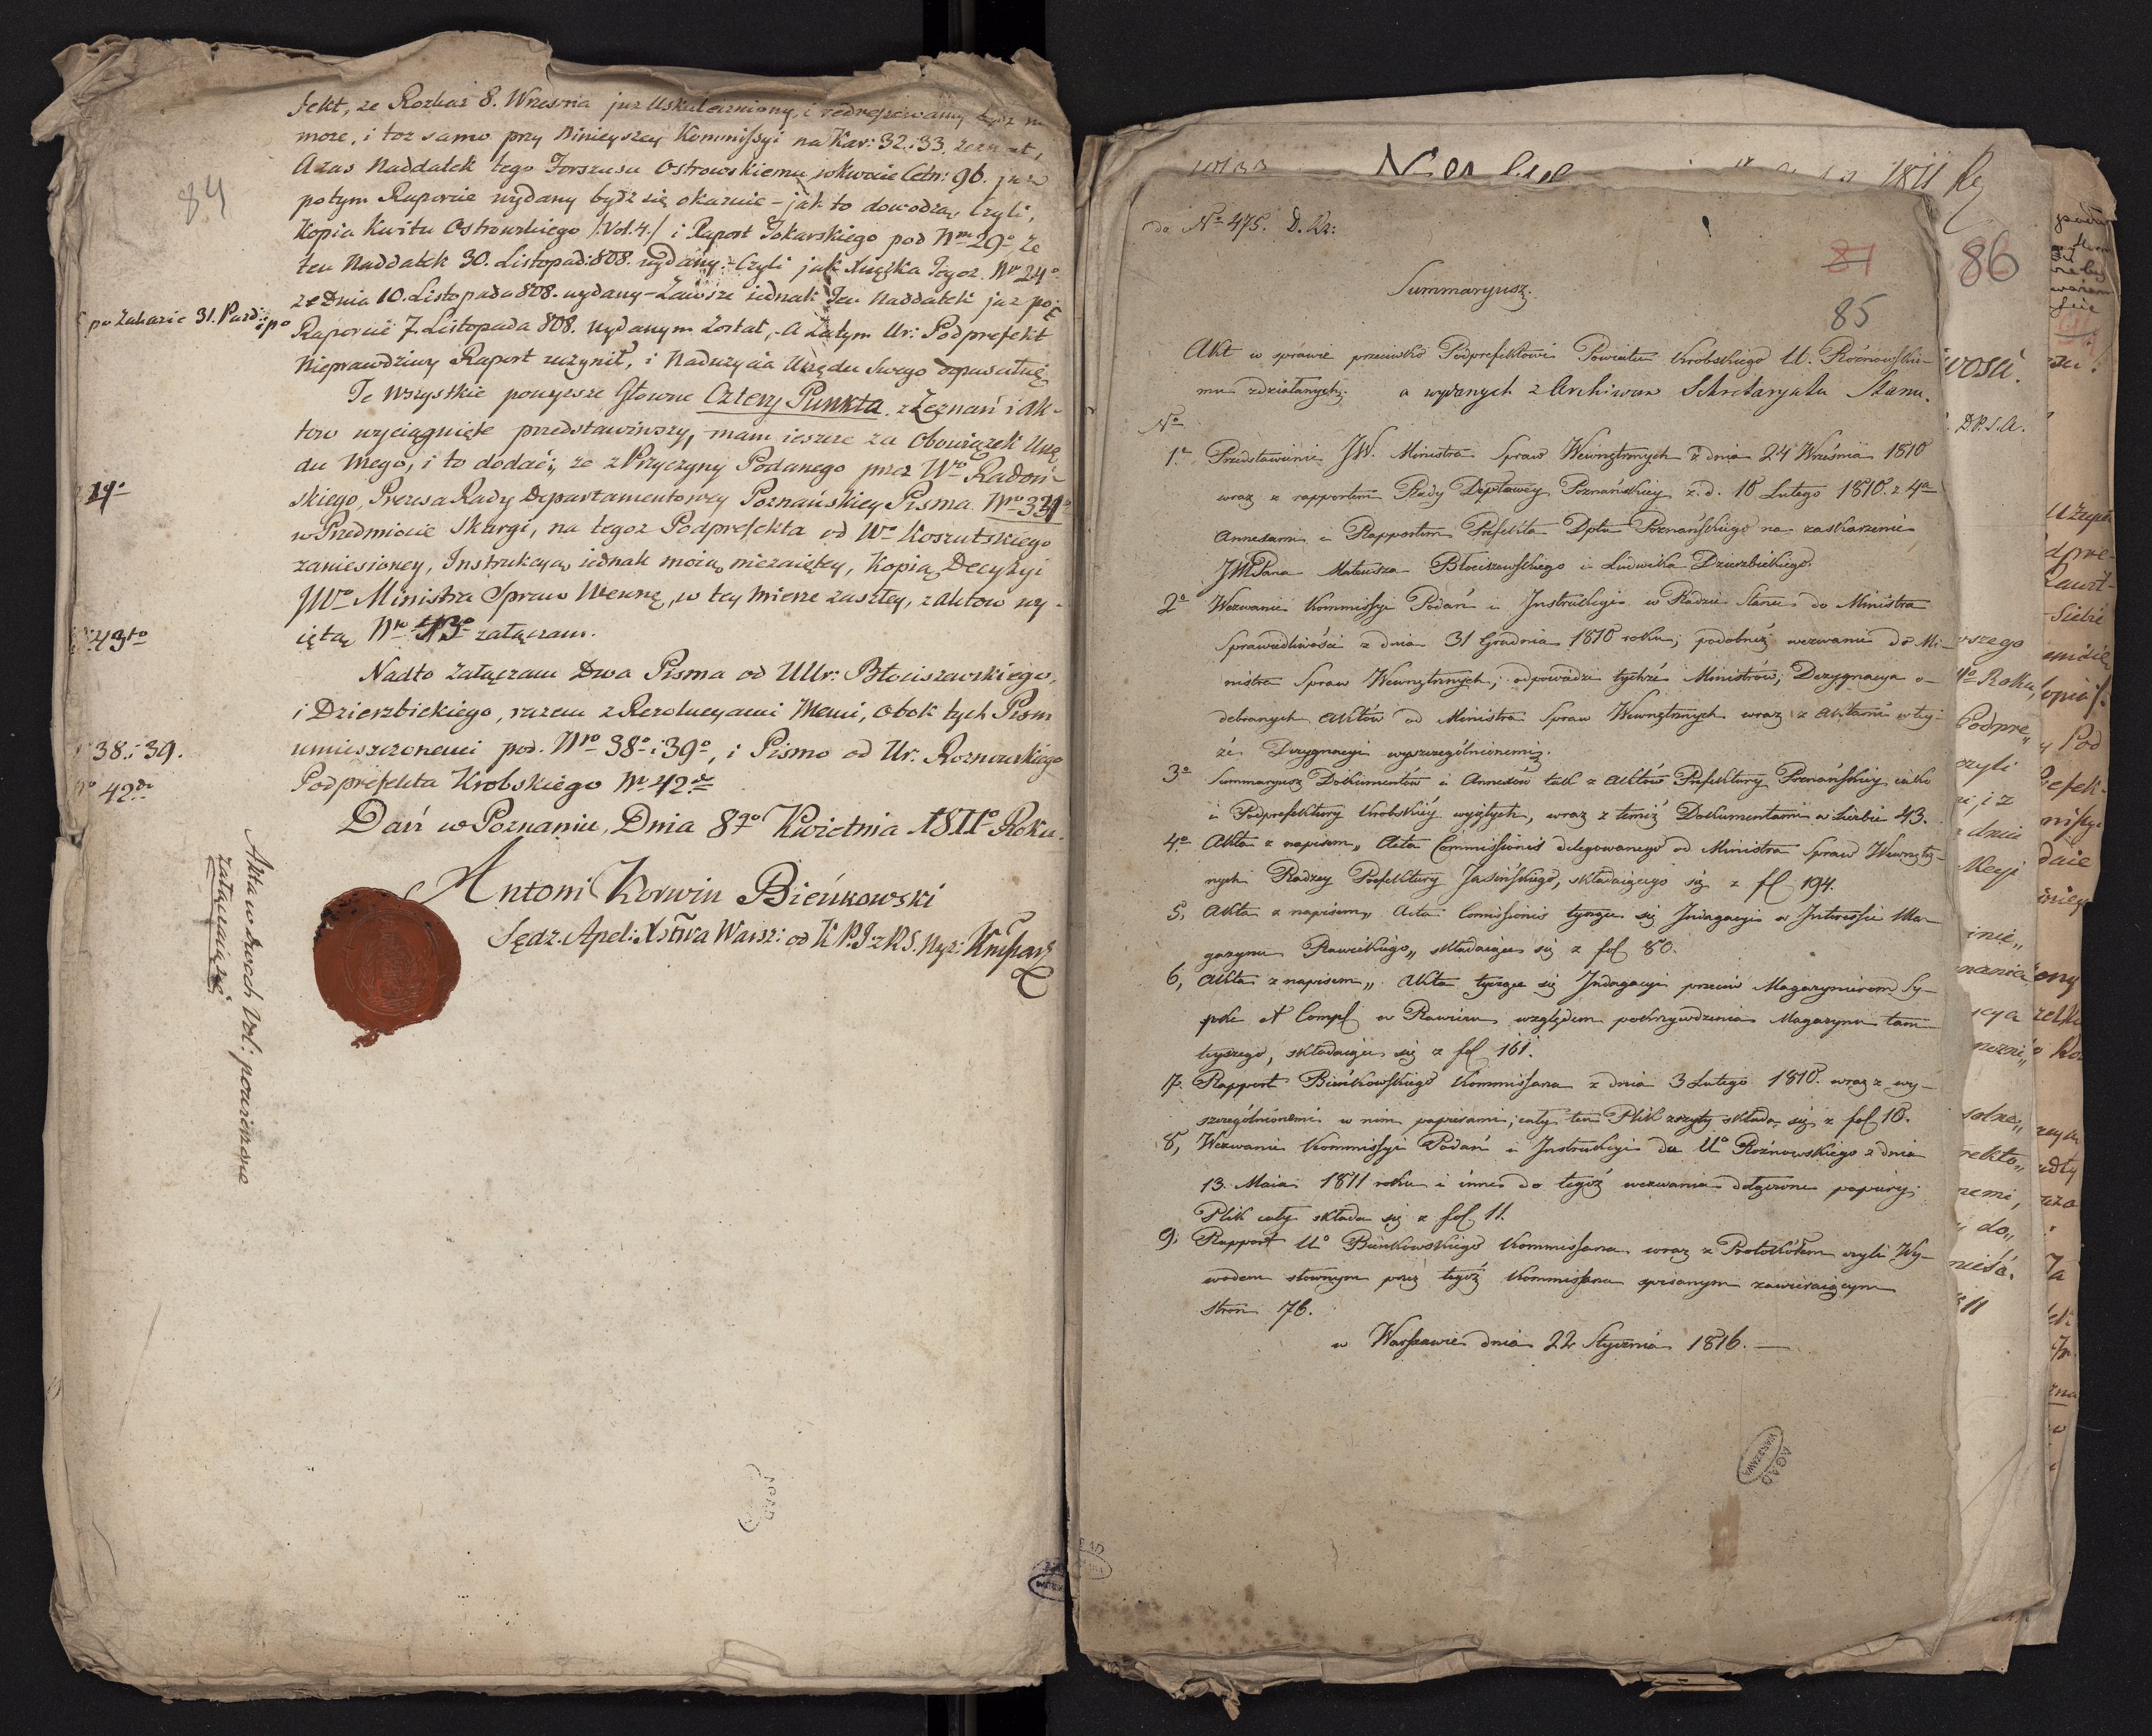 84
fekt, ze Rozkaz 8. Września juz Uskuteczniony, i redressowany bydz
moze, i toz samo przy Ninieyszey Kommissyi na Kar: 32.i33. zeznał,
A zas Naddatek tego Forszusu Ostrowskiemu w kwocie Cetn: 96. juz
potym Raporcie wydany bydz się okazuie – jak to dowodzą, Czyli,
Kopia Kwitu Ostrowskiego /:Vol.4./ i Raport Tokarskiego pod Nrm 29o Ze
ten Naddatek 30. Listopad: 808. wydany. – Czyli jak Xiążka Tegoz Nro 24o
ze Dnia 10. Listopada 808. wydany – Zawsze iednak Ten Naddatek juz po
po Zakazie 31. Paźd: i po
Raporcie 7. Listopada 808. wydanym Został, – A Zatym Ur: Podprefekt
Nieprawdziwy Raport uczynił, i Naduzycia Urzędu Swego dopuscił się
Te wszystkie powyzsze Głowne Cztery Punkta z Zeznań i Ak-
tow wyciągnięte przedstawiwszy, mam ieszcze za Obowiązek Urzę
du Mego, i to dodać, ze z Przyczyny Podanego przez Wgo Radoń-
skiego, Prezesa Rady Departamentowey Poznańskiey Pisma. Nro
w Przedmiocie Skargi, na tegoz Podprefekta od Wo Koszutskiego
zaniesioney, Instrukcyą iednak moią niezaiętey, Kopią Decyzyi
JWo Ministra Spraw Wewnę, w tey Mierze zaszłey, z Aktow wy-
iętą Nro 43o załączam.
43to
Nadto Załączam Dwa Pisma od UUr: Błociszewskiego,
i Dzierzbickiego, razem z Rezolucyami Memi, obok tych Pism
umieszczonemi pod. Nro 38o i 39o, i Pismo od Ur. Roznowskiego
38.i 39.
Podprefekta Krobskiego Nr 42do
42do
Dań w Poznaniu, Dnia 8go Kwietnia 1811o Roku.
Antoni Korwin Bieńkowski
Sędz. Apel: Xstwa Warsz: od K P.J z R S. Wyz:
Akta w dwoch Vol: powierzone
załączaią się
do No 475. D. Kr:
81
85
Summaryusz.
Akt w sprawie przeciwko Podprefektowi Powiatu Krobskiego U. Rożnowskie-
mu zdziałanych; a wydanych z Archiwum Sekretaryatu Stanu.
No
1o Przedstawienie JW. Ministra Spraw Wewnętrznych z dnia 24 Września 1810
wraz z rapportem Rady Deptowey Poznańskiey z. d. 18 Lutego 1810. z 4a
Annexami i Rapportem Prefekta Dptu Poznańskiego na zaskarzenie
JMPana Mateusza Błociszewskiego i Ludwika Dzierzbickiego.
2o Wezwanie Kommissyi Podań i Instrukcyi w Radzie Stanu do Ministra
Sprawiedliwości z dnia 31 Grudnia 1810 roku; podobnież wezwanie do Mi-
nistra Spraw Wewnętrznych; odpowiedzi tychże Ministrów; Dezygnacya o-
debranych Aktów od Ministra Spraw Wewnętrznych wraz z Aktami w tey-
że Dezygnacyi wyszczególnionemi.
3o Summaryusz Dokumentów i Annexów tak z Aktów Prefektury Poznańskiey iako
i Podprefektury Krobskiey wyiętych, wraz z temiż Dokumentami w liczbie 43.
4o Akta z napisem „ Acta Commissionis delegowanego od Ministra Spraw Wewnętrz-
nych Radzcy Prefektury Jasińskiego, składaiącego się z fol 194.
5, Akta z napisem „ Acta Comissionis tyczące się Indagacyi w Interessie Ma-
gazynu Rawickiego „ składaiące się z fol 80.
6, Akta z napisem „ Akta tyczące się Indagacyi przeciw Magazynierom Sy-
pke et Comp w Rawiczu względem pokrzywdzenia Magazynu tam-
teyszego, składaiące się z fol 161.
7. Rapport Bieńkowskiego Kommissarza z dnia 3 Lutego 1810. wraz z wy-
szczególnionemi w nim papierami; cały ten Plik zszyty składa się z fol 10.
8, Wezwanie Kommissyi Podań i Instrukcyi do Uo Rożnowskiego z dnia
13. Maia 1811 roku i inne do tegóż wezwania dołączone papiery;
Plik cały składa się z fol 11.
9; Rapport Uo Bienkowskiego Kommissarza wraz z Protokółem czyli Wy-
wodem słownym przez tegóż Kommissarza spisanym zawieraiącym
stron 76.
w Warszawie dnia 22 Stycznia 1816. —
AGAD
WARSZAWA
1811
86
D.P.S.A.